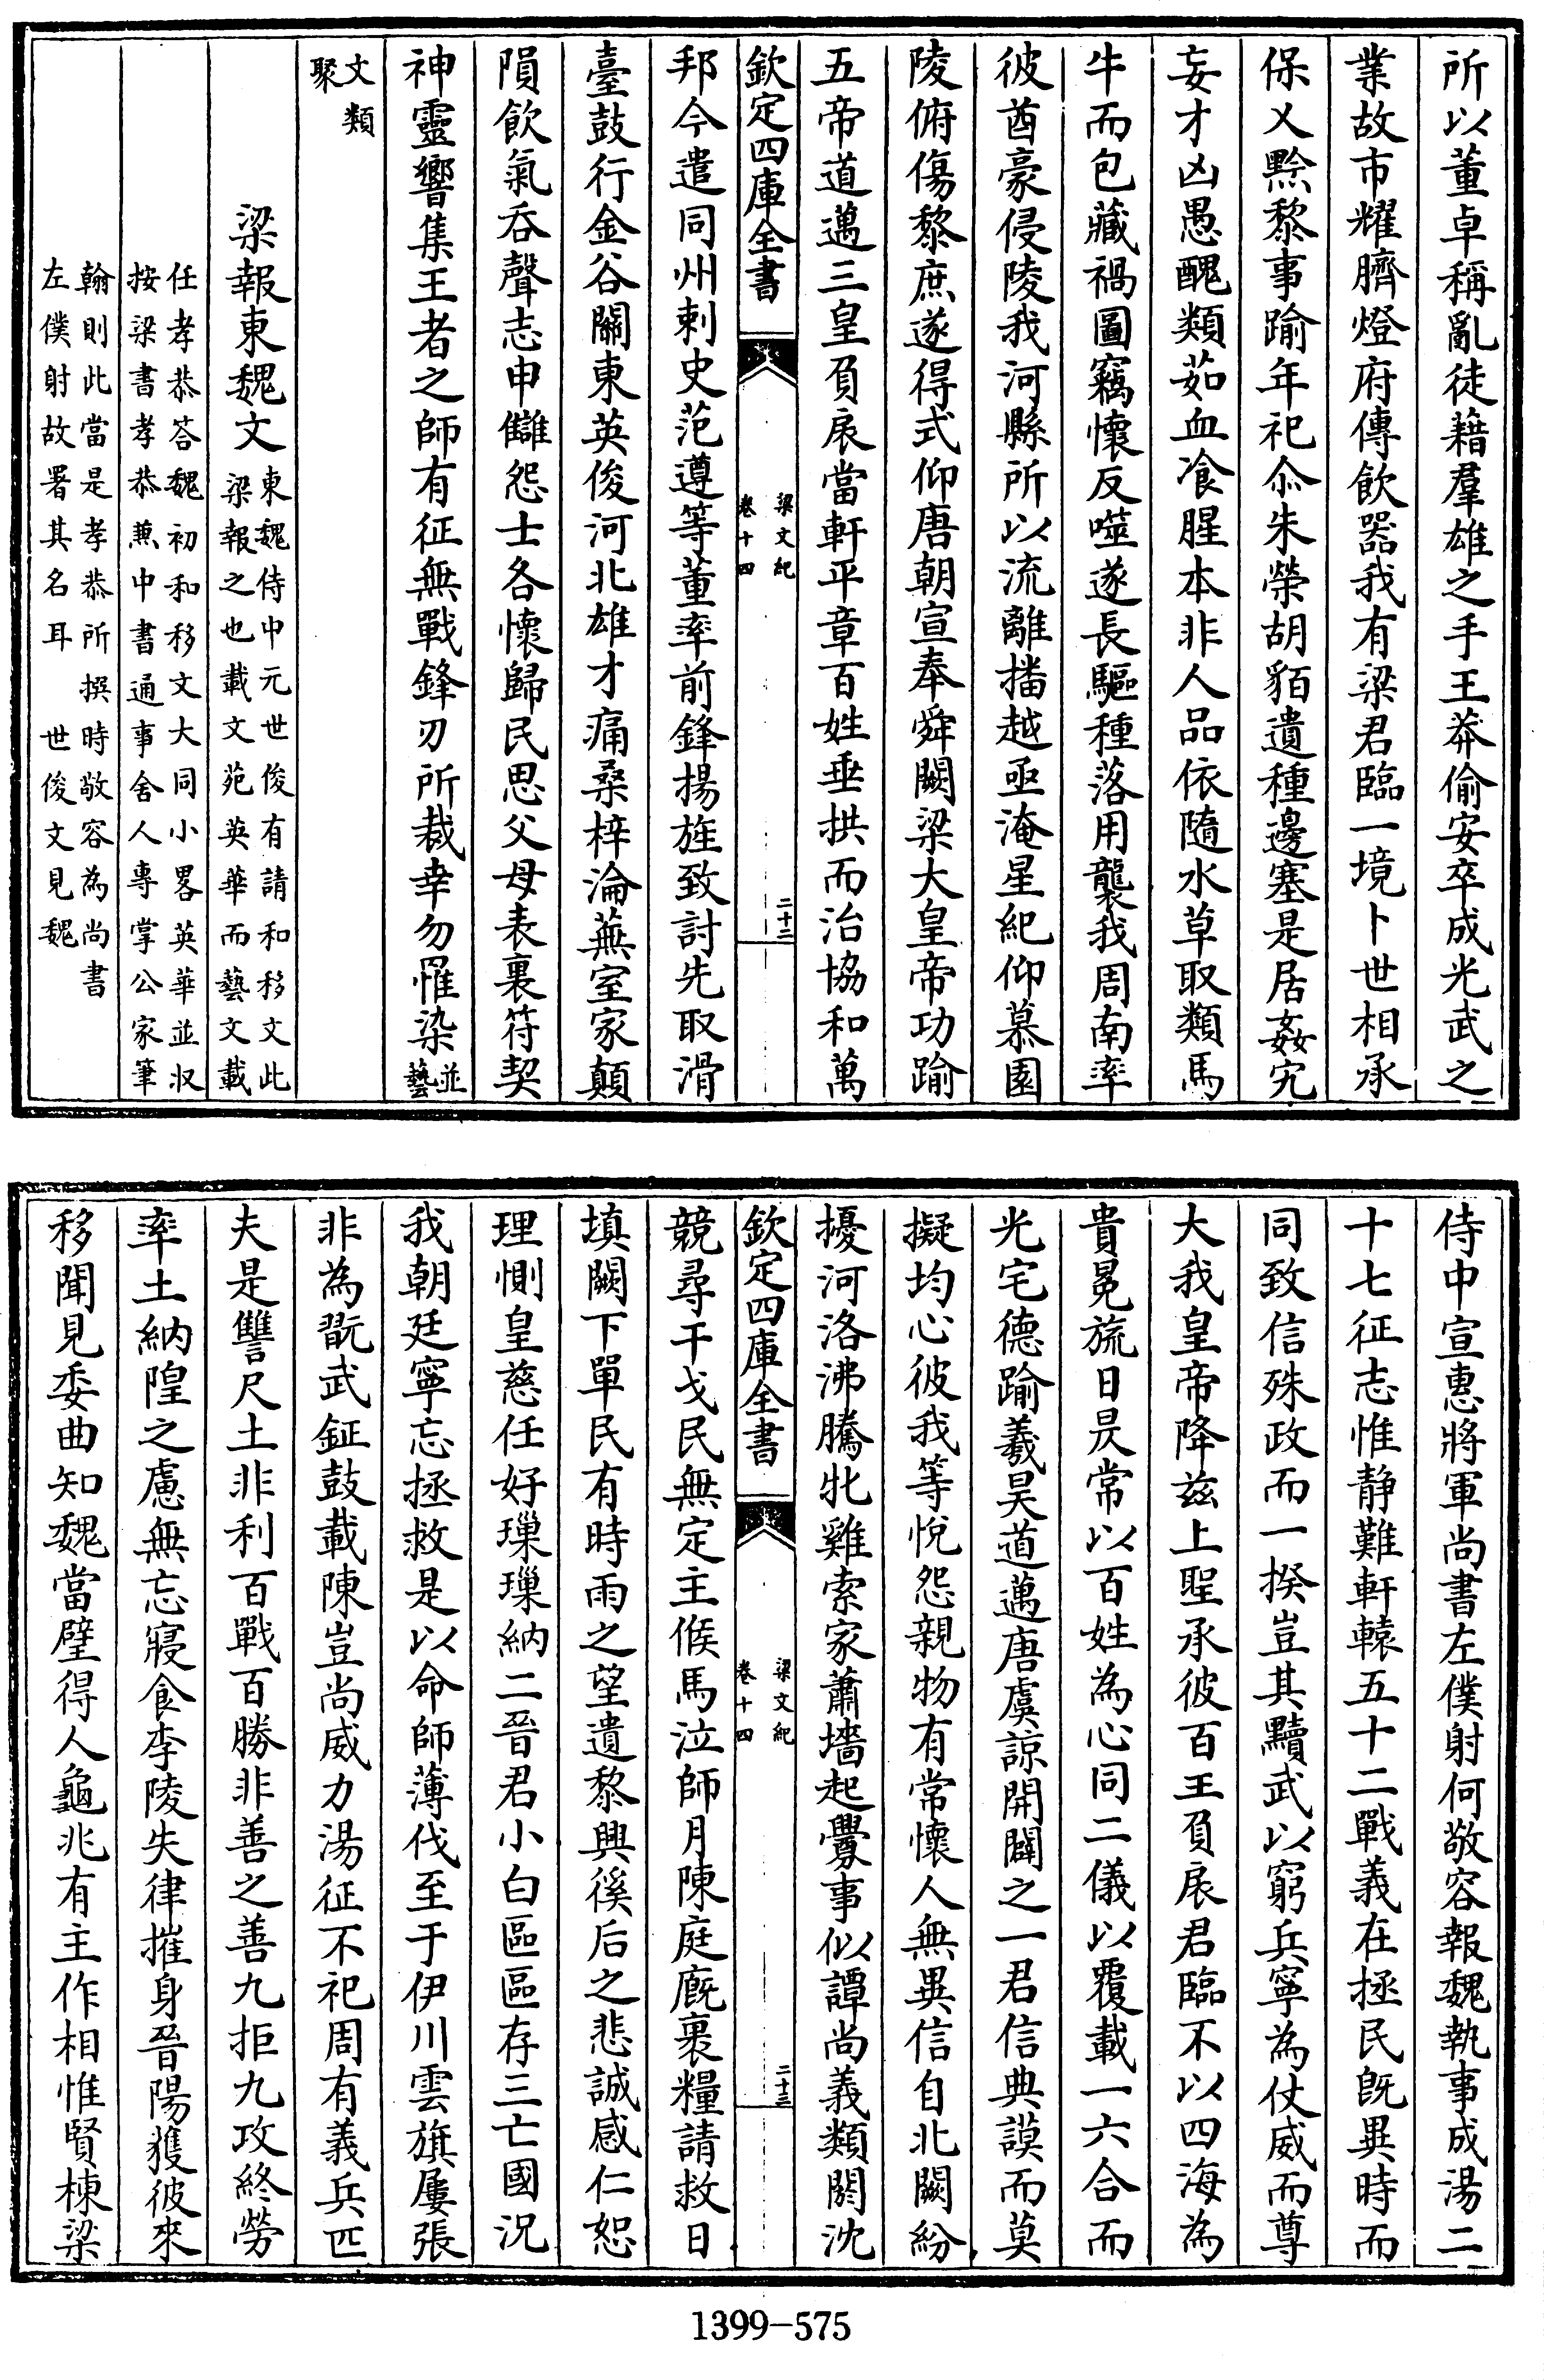 所以董卓稱亂徒藉羣雄之手王莽偷安卒成光武之
業故市耀臍燈府傳飲器我有梁君臨一境卜世相承
保乂黔黎事踰年祀尒朱榮胡貊遺種邊塞是居姦宄
妄才凶愚醜類茹血飡腥本非人品依隨水草取類馬
牛而包藏禍圖竊懷反噬遂長驅種落用襲我周南率
彼酋豪侵陵我河縣所以流離播越亟淹星紀仰慕園
陵俯傷黎庶遂得式仰唐朝宣奉舜闕梁大皇帝功踰
五帝道邁三皇負扆當軒平章百姓垂拱而治協和萬
欽定四庫全書
梁文紀
卷十四
二十二
邦今遣同州刺史范遵等董率前鋒揚旌致討先取滑
臺鼓行金谷關東英俊河北雄才痛桑梓淪蕪室家顛
隕飲氣吞聲志申讎怨士各懷歸民思父母表裏符契
神靈響集王者之師有征無戰鋒刃所裁幸勿罹染並
藝
文類
聚
梁報東魏文東魏侍中元世俊有請和移文此
梁報之也載文苑英華而藝文載
任孝恭答魏初和移文大同小畧英華並収
按梁書孝恭兼中書通事舍人專掌公家筆
翰則此當是孝恭所撰時敬容為尚書
左僕射故署其名耳 世俊文見魏
侍中宣惠將軍尚書左僕射何敬容報魏執事成湯二
十七征志惟静難軒轅五十二戰義在拯民旣異時而
同致信殊政而一揆豈其黷武以窮兵寧為仗威而尊
大我皇帝降兹上聖承彼百王負扆君臨不以四海為
貴冕旒日昃常以百姓為心同二儀以覆載一六合而
光宅德踰羲昊道邁唐虞諒開闢之一君信典謨而莫
擬均心彼我等悅怨親物有常懷人無異信自北闕紛
擾河洛沸騰牝雞索家蕭墻起釁事似譚尚義類閼沈
欽定四庫全書
梁文紀
卷十四
二十三
競尋干戈民無定主候馬泣師月陳庭廐裹糧請救日
填闕下單民有時雨之望遺黎興徯后之悲誠感仁恕
理惻皇慈任好璅璅納二晉君小白區區存三亡國況
我朝廷寧忘拯救是以命師薄伐至于伊川雲旗屢張
非為翫武鉦鼓載陳豈尚威力湯征不祀周有義兵匹
夫是讐尺土非利百戰百勝非善之善九拒九攻終勞
率土納隍之慮無忘寢食李陵失律摧身晉陽獲彼來
移聞見委曲知魏當璧得人龜兆有主作相惟賢棟梁
1399-575